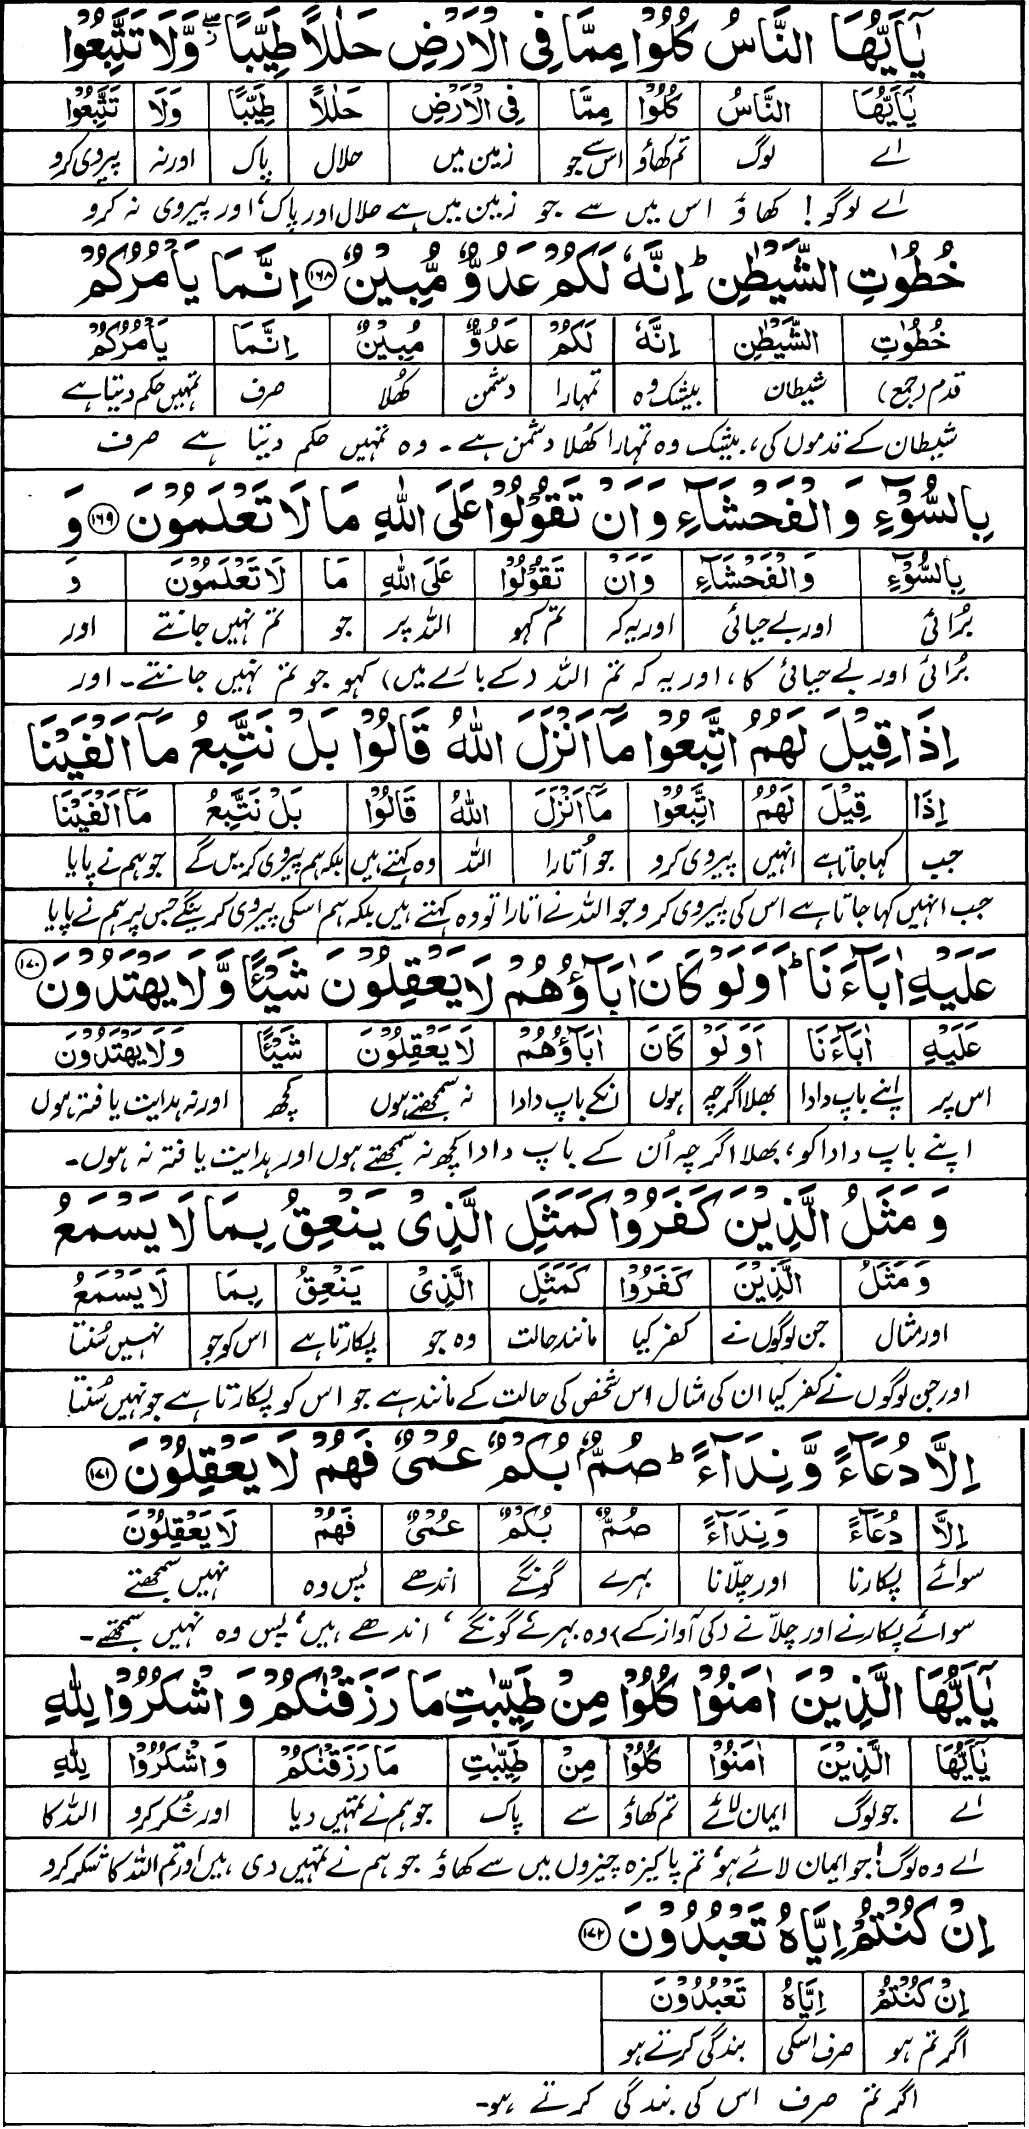 يٰۤاَيُّهَا النَّاسُ كُلُوْا مِمَّا فِى الْاَرْضِ حَلٰلًا طَيِّبًا ۖ وَّلَا تَتَّبِعُوْا
يٰۤاَيُّهَا النَّاسُ كُلُوْا مِمَّا فِى الْاَرْضِ حَلٰلًا طَيِّبًا وَلَا تَتَّبِعُوْا
اے لوگ تم کھاؤ اس سے جو زمین میں حلال پاک اور نہ پیروی کرو
اے لوگو! کھاؤ اس میں سے جو زمین میں ہے حلال اور پاک، اور پیروی نہ کرو
خُطُوٰتِ الشَّيْطٰنِ ؕ اِنَّهٗ لَكُمْ عَدُوٌّ مُّبِيْنٌ ۝۱۶۸ اِنَّمَا يَاْمُرُكُمْ
خُطُوٰتِ الشَّيْطٰنِ اِنَّهٗ لَكُمْ عَدُوٌّ مُبِيْنٌ اِنَّمَا يَاْمُرُكُمْ
قدم (جمع) شیطان بیشک وہ تمہارا دشمن کھُلا صرف تمہیں حکم دیتا ہے
شیطان کے قدموں کی، بیشک وہ تمہارا کھُلا دشمن ہے۔ وہ تمہیں حکم دیتا ہے صرف
بِالسُّوْٓءِ وَ الْفَحْشَآءِ وَ اَنْ تَقُوْلُوْا عَلَى اللّٰهِ مَا لَا تَعْلَمُوْنَ ۝۱۶۹ وَ
بِالسُّوْٓءِ وَالْفَحْشَآءِ وَاَنْ تَقُوْلُوْا عَلَى اللّٰهِ مَا لَا تَعْلَمُوْنَ وَ
بُرائی اور بے حیائی اور یہ کہ تم کہو اللہ پر جو تم نہیں جانتے اور
بُرائی اور بے حیائی کا، اور یہ کہ تم اللہ (کے بارے میں) کہو جو تم نہیں جانتے۔ اور
اِذَا قِيْلَ لَهُمُ اتَّبِعُوْا مَاۤ اَنْزَلَ اللّٰهُ قَالُوْا بَلْ نَتَّبِعُ مَاۤ اَلْفَيْنَا
اِذَا قِيْلَ لَهُمُ اتَّبِعُوْا مَاۤ اَنْزَلَ اللّٰهُ قَالُوْا بَلْ نَتَّبِعُ مَاۤ اَلْفَيْنَا
جب کہا جاتا ہے انہیں پیروی کرو جو اُتارا اللہ وہ کہتے ہیں بلکہ ہم پیروی کریں گے جو ہم نے پایا
جب انہیں کہا جاتا ہے اس کی پیروی کرو جو اللہ نے اتارا تو وہ کہتے ہیں بلکہ ہم اسکی پیروی کرینگے جس پر ہم نے پایا
عَلَيْهِ اٰبَآءَنَا ؕ اَوَلَوْ كَانَ اٰبَآؤُهُمْ لَا يَعْقِلُوْنَ شَيْـًٔا وَّلَا يَهْتَدُوْنَ ۝۱۷۰
عَلَيْهِ اٰبَآءَنَا اَوَلَوْ كَانَ اٰبَآؤُهُمْ لَا يَعْقِلُوْنَ شَيْـًٔا وَلَا يَهْتَدُوْنَ
اس پر اپنے باپ دادا بھلا اگرچہ ہوں انکے باپ دادا نہ سمجھتے ہوں کچھ اور نہ ہدایت یافتہ ہوں
اپنے باپ دادا کو، بھلا اگرچہ اُن کے باپ دادا کچھ نہ سمجھتے ہوں اور ہدایت یافتہ نہ ہوں۔
وَ مَثَلُ الَّذِيْنَ كَفَرُوْا كَمَثَلِ الَّذِىْ يَنْعِقُ بِمَا لَا يَسْمَعُ
وَ مَثَلُ الَّذِيْنَ كَفَرُوْا كَمَثَلِ الَّذِىْ يَنْعِقُ بِمَا لَا يَسْمَعُ
اور مثال جن لوگوں نے کفر کیا مانند حالت وہ جو پکارتا ہے اس کو جو نہیں سُنتا
اور جن لوگوں نے کفر کیا ان کی مثال اس شخص کی حالت کے مانند ہے جو اس کو پکارتا ہے جو نہیں سُنتا
اِلَّا دُعَآءً وَّ نِدَآءً ؕ صُمٌّۢ بُكْمٌ عُمْىٌ فَهُمْ لَا يَعْقِلُوْنَ ۝۱۷۱
اِلَّا دُعَآءً وَنِدَآءً صُمٌّ بُكْمٌ عُمْىٌ فَهُمْ لَا يَعْقِلُوْنَ
سوائے پکارنا اور چِلّانا بہرے گونگے اندھے پس وہ نہیں سمجھتے
سوائے پکارنے اور چلّانے (کی آواز کے) وہ بہرے گونگے، اندھے ہیں، پس وہ نہیں سمجھتے۔
يٰۤاَيُّهَا الَّذِيْنَ اٰمَنُوْا كُلُوْا مِنْ طَيِّبٰتِ مَا رَزَقْنٰكُمْ وَ اشْكُرُوْا لِلّٰهِ
يٰۤاَيُّهَا الَّذِيْنَ اٰمَنُوْا كُلُوْا مِنْ طَيِّبٰتِ مَا رَزَقْنٰكُمْ وَاشْكُرُوْا لِلّٰهِ
اے جو لوگ ایمان لائے تم کھاؤ سے پاک جو ہم نے تمہیں دیا اور شُکر کرو اللہ کا
اے وہ لوگ! جو ایمان لائے ہو، تم پاکیزہ چیزوں میں سے کھاؤ جو ہم نے تمہیں دی ہیں اور تم اللہ کا شکر کرو
اِنْ كُنْتُمْ اِيَّاهُ تَعْبُدُوْنَ ۝۱۷۲
اِنْ كُنْتُمْ اِيَّاهُ تَعْبُدُوْنَ
اگر تم ہو صرف اسکی بندگی کرتے ہو
اگر تم صرف اس کی بندگی کرتے ہو۔